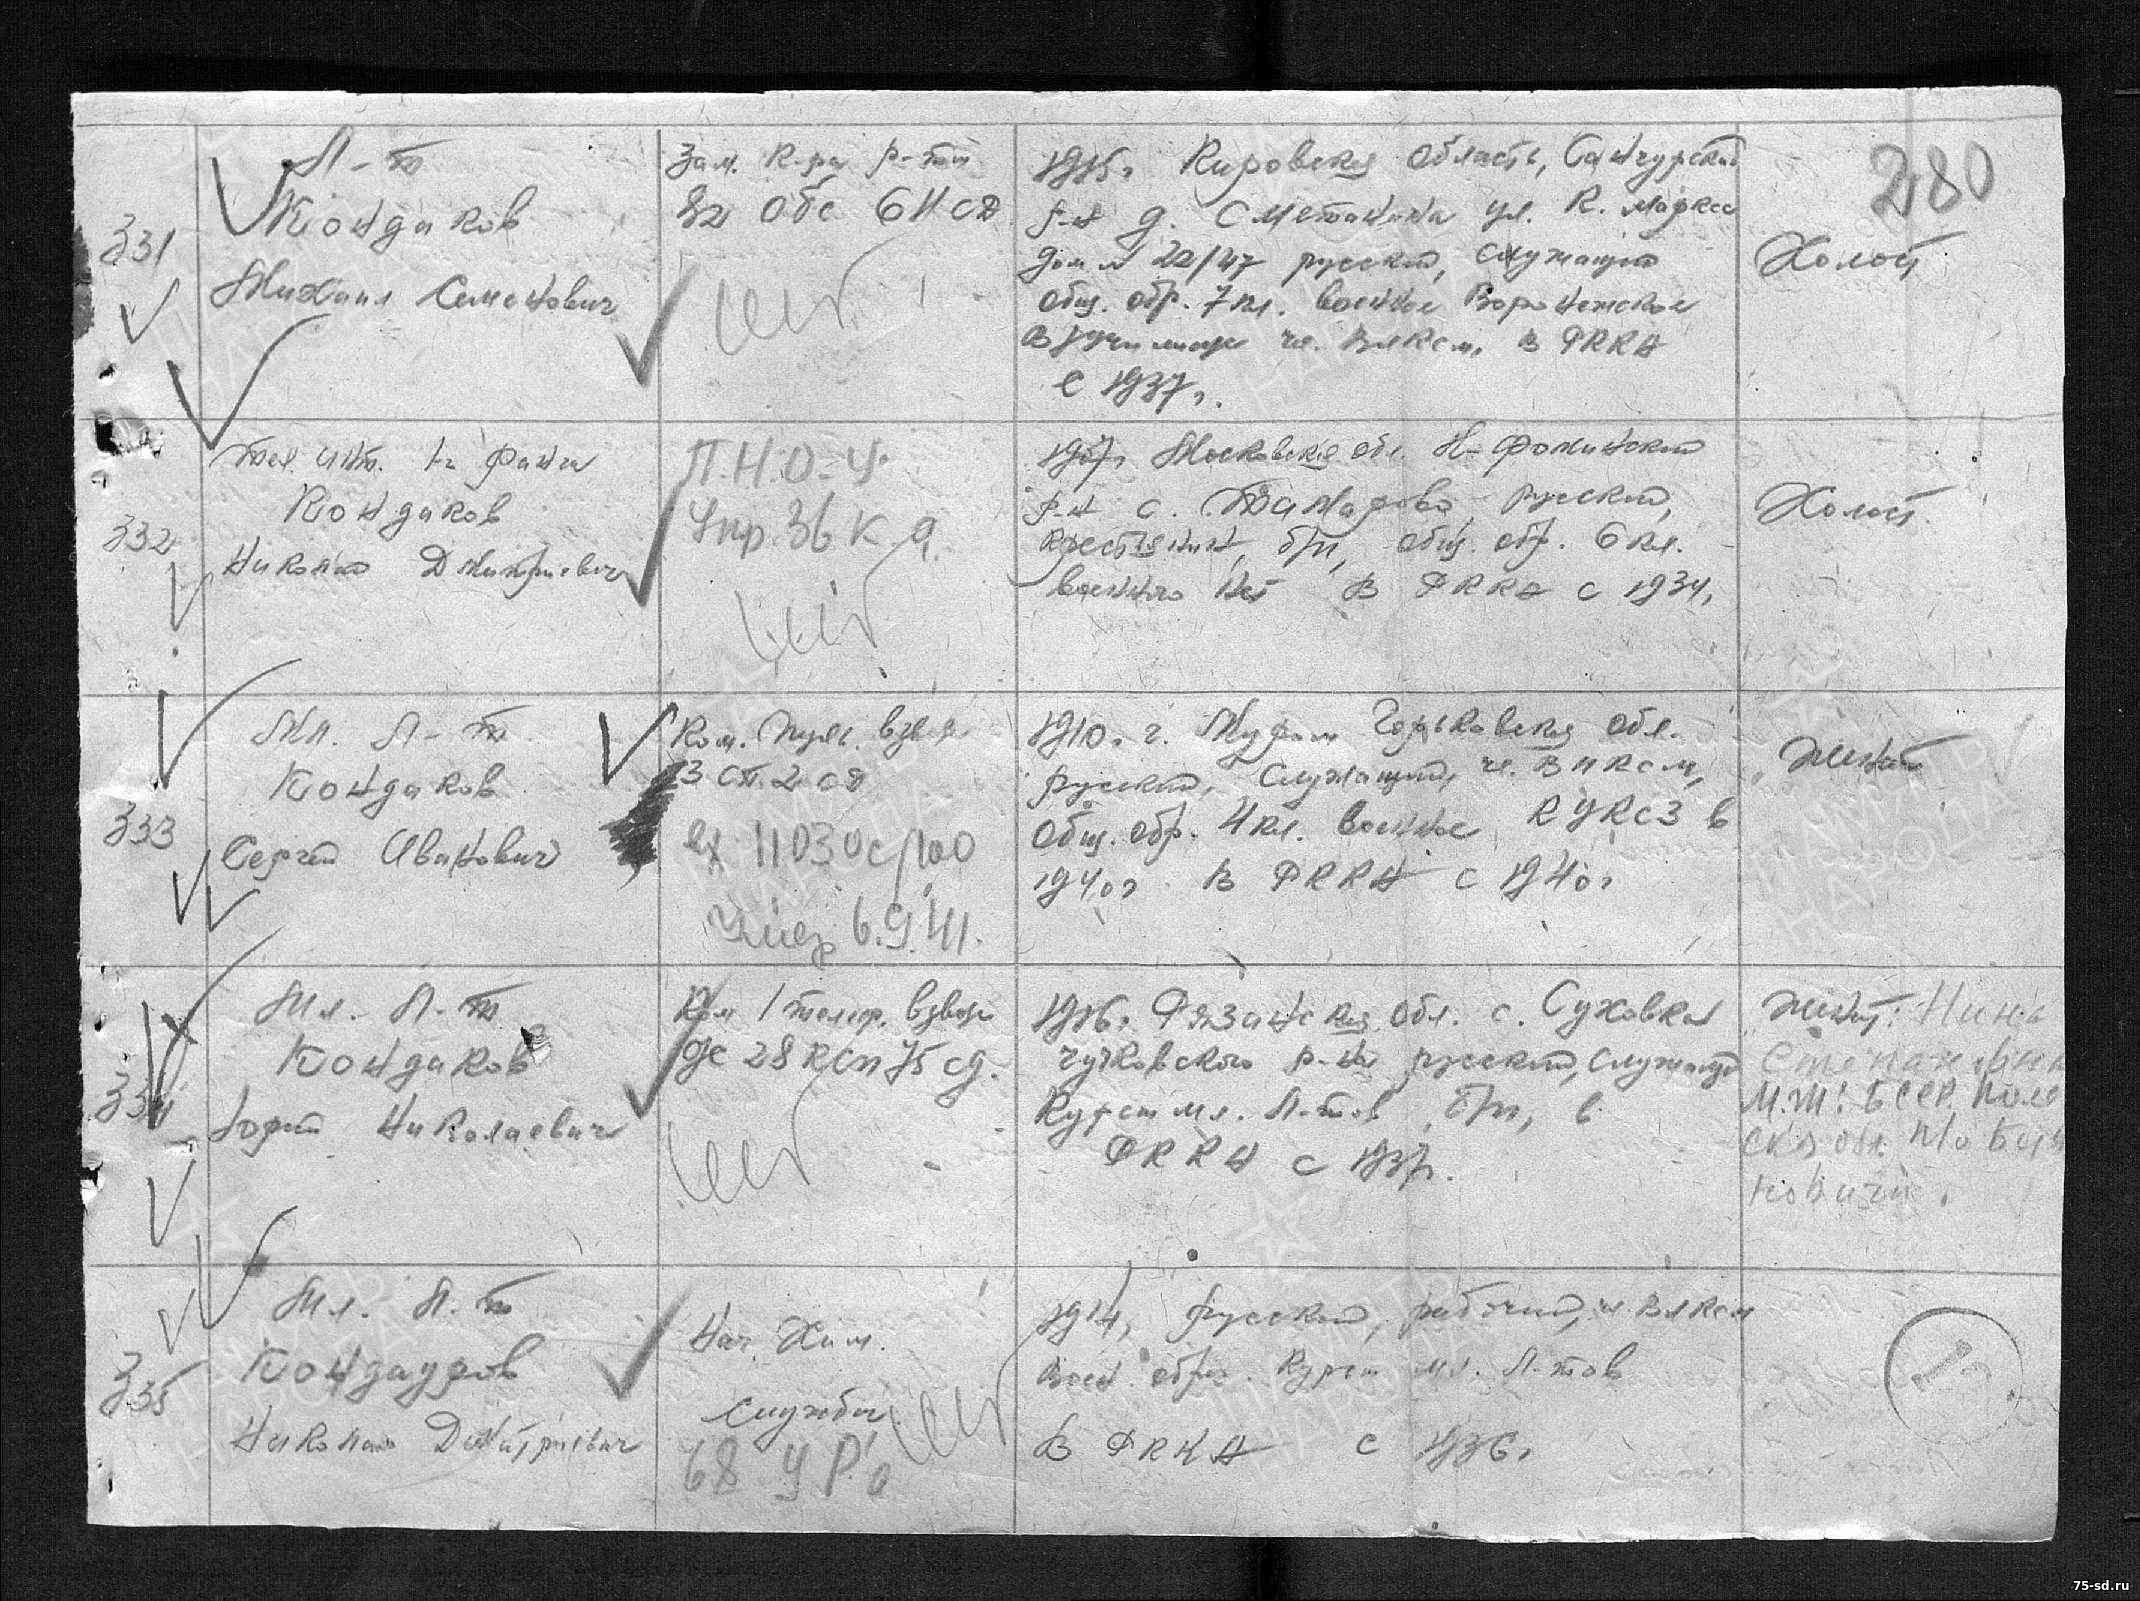 280
331
Л-т
Кондаков
Михаил Семенович
Зам. К-ра р-ты
82 обс 6 НСД
1915г Кировская область, Санчурский
р-н д. Сметанина ул. К. Маркса
дом № 22/47 русский, служащий
общ. обр. 7 кл. военное Воронежское
В/училище чл. Влксм, в РККА
с 1937г.
Холост
332
Тех. инт. 1-г ранга
Кондаков
Николай Дмитриевич
П.Н.О-У
Упр. 36 К.Д.
1907г Московская обл. Н-Фоминский
р-н с. русский,
крестьянин, б/п, общ. обр. 6 кл.
военного нет В РККА с 1934,
Холост
333
Мл. Л-т
Кондаков
Сергей Иванович
Ком. пул. взвода
3 СП 2 СД
вх 11030с/100
6.9.41.
1910г. г. Муром Горьковская обл.
русский, служащий, чл. Влксм,
Общ. обр. 4 кл. военное КУКСЗ в
1940г В РККА с 1940г
Женат
334
Мл. Л-т
Кондаков
Юрий Николаевич
Ком 1 телеф. взвода
РС 28 КСП 75 сд.
1916г Рязанская обл. с. Суховка
Чучковского р-на русский, служащ
Курсы мл. Л-тов б/п, в
РККА с 1937г.
Женат: Нина
Степановна
М.Ж: БССР, Поле
ская обл.
335
Мл. Л-т
Кондауров
Николай Дмитриевич
Нач. Хим.
службы
68 УР'а
1914, Русский, рабочий, чл Влксм
Воен. образ. Курсы мл. Л-тов
В РККА с 1936г
75-sd.ru